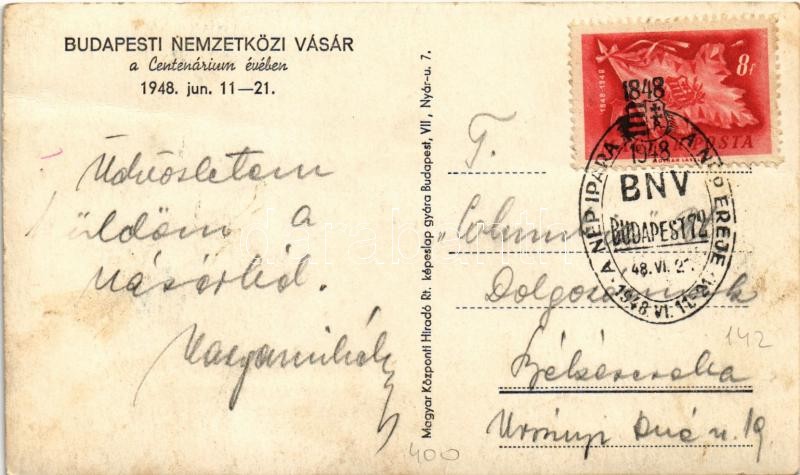 BUDAPESTI NEMZETKÖZI VÁSÁR
a Centenárium évében
1948. jun. 11—21.
Üdvözletem
küldöm a
vásárból.
Magyar Központi Hiradó Rt. képeslap gyára Budapest, VII., Nyár-u. 7.
8f
1848-1948
POSTA
A NÉP IPARA A NÉP EREJE
1848
1948
BNV
BUDAPEST 72
48. VI. 21
1948. VI. 11-21.
T.
Dolgozóinak
Békéscsaba
u. 19
142
400